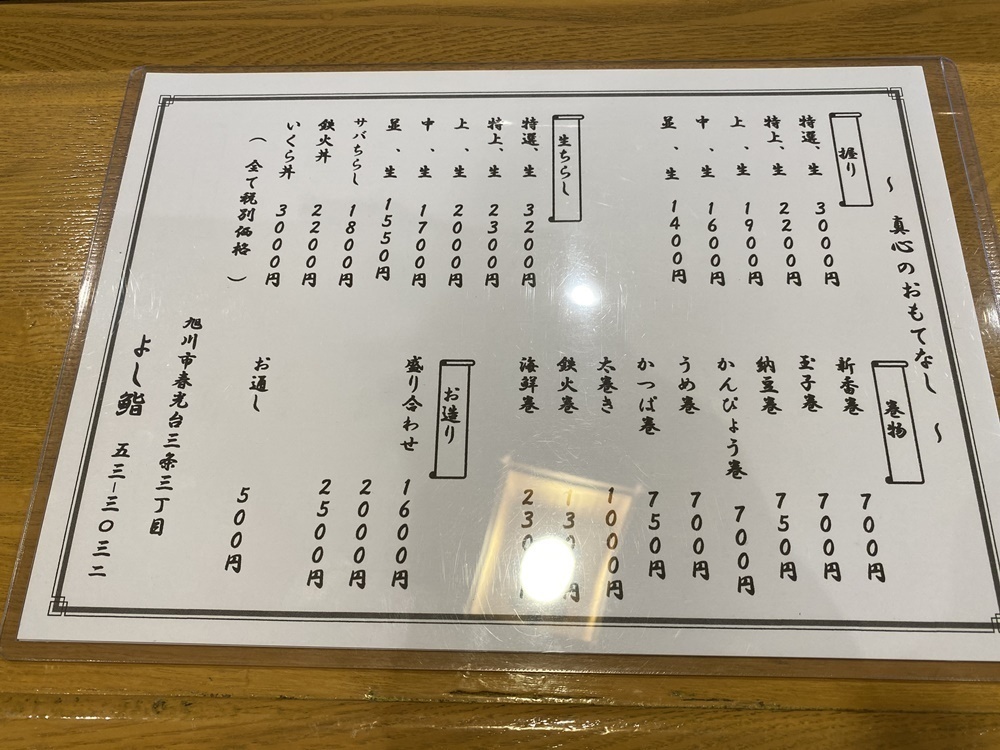 ～ 真心のおもてなし ～
握り
特選、生 3000円
特上、生 2200円
上、生 1900円
中、生 1600円
並、生 1400円
生ちらし
特選、生 3200円
特上、生 2300円
上、生 2000円
中、生 1700円
並、生 1550円
サバちらし 1800円
鉄火丼 2200円
いくら丼 3000円
（全て税別価格）
巻物
新香巻 700円
玉子巻 700円
納豆巻 750円
かんぴょう巻 700円
うめ巻 700円
かつぱ巻 750円
太巻き 1000円
鉄火巻 130 円
海鮮巻 230
お造り
盛り合わせ 1600円
2000円
2500円
お通し 500円
旭川市春光台三条三丁目
よし鮨 五三－三〇三二